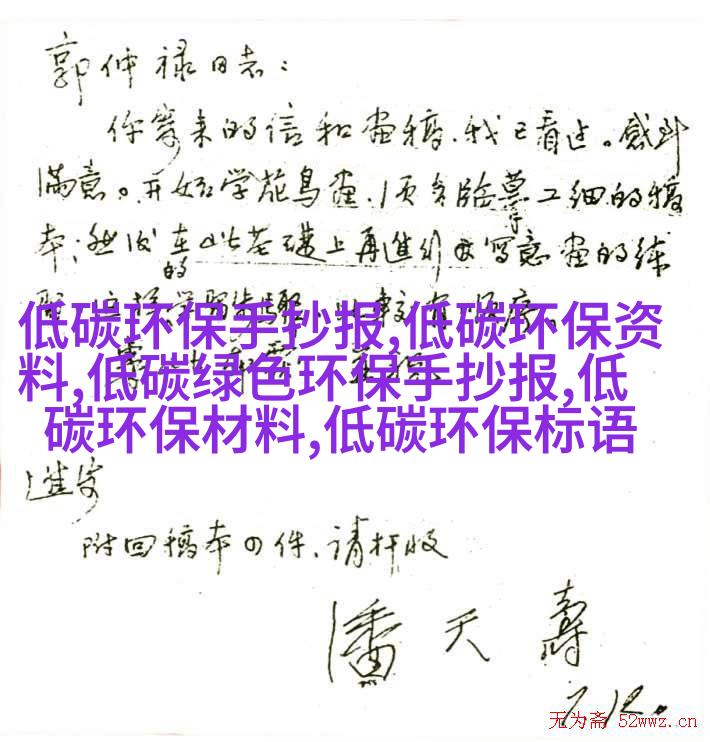 郭仲禄同志：
你寄来的信和画稿，我已看过。感到
满意。开始学花鸟画，须多临摹工细的稿
本；然后在此基础上再进行写意画的练
的
低碳环保手抄报,低碳环保资
料,低碳绿色环保手抄报,低
碳环保材料,低碳环保标语
进安
附回稿本四件，请检收
潘天寿
7.12.
无为斋 52wwz.cn